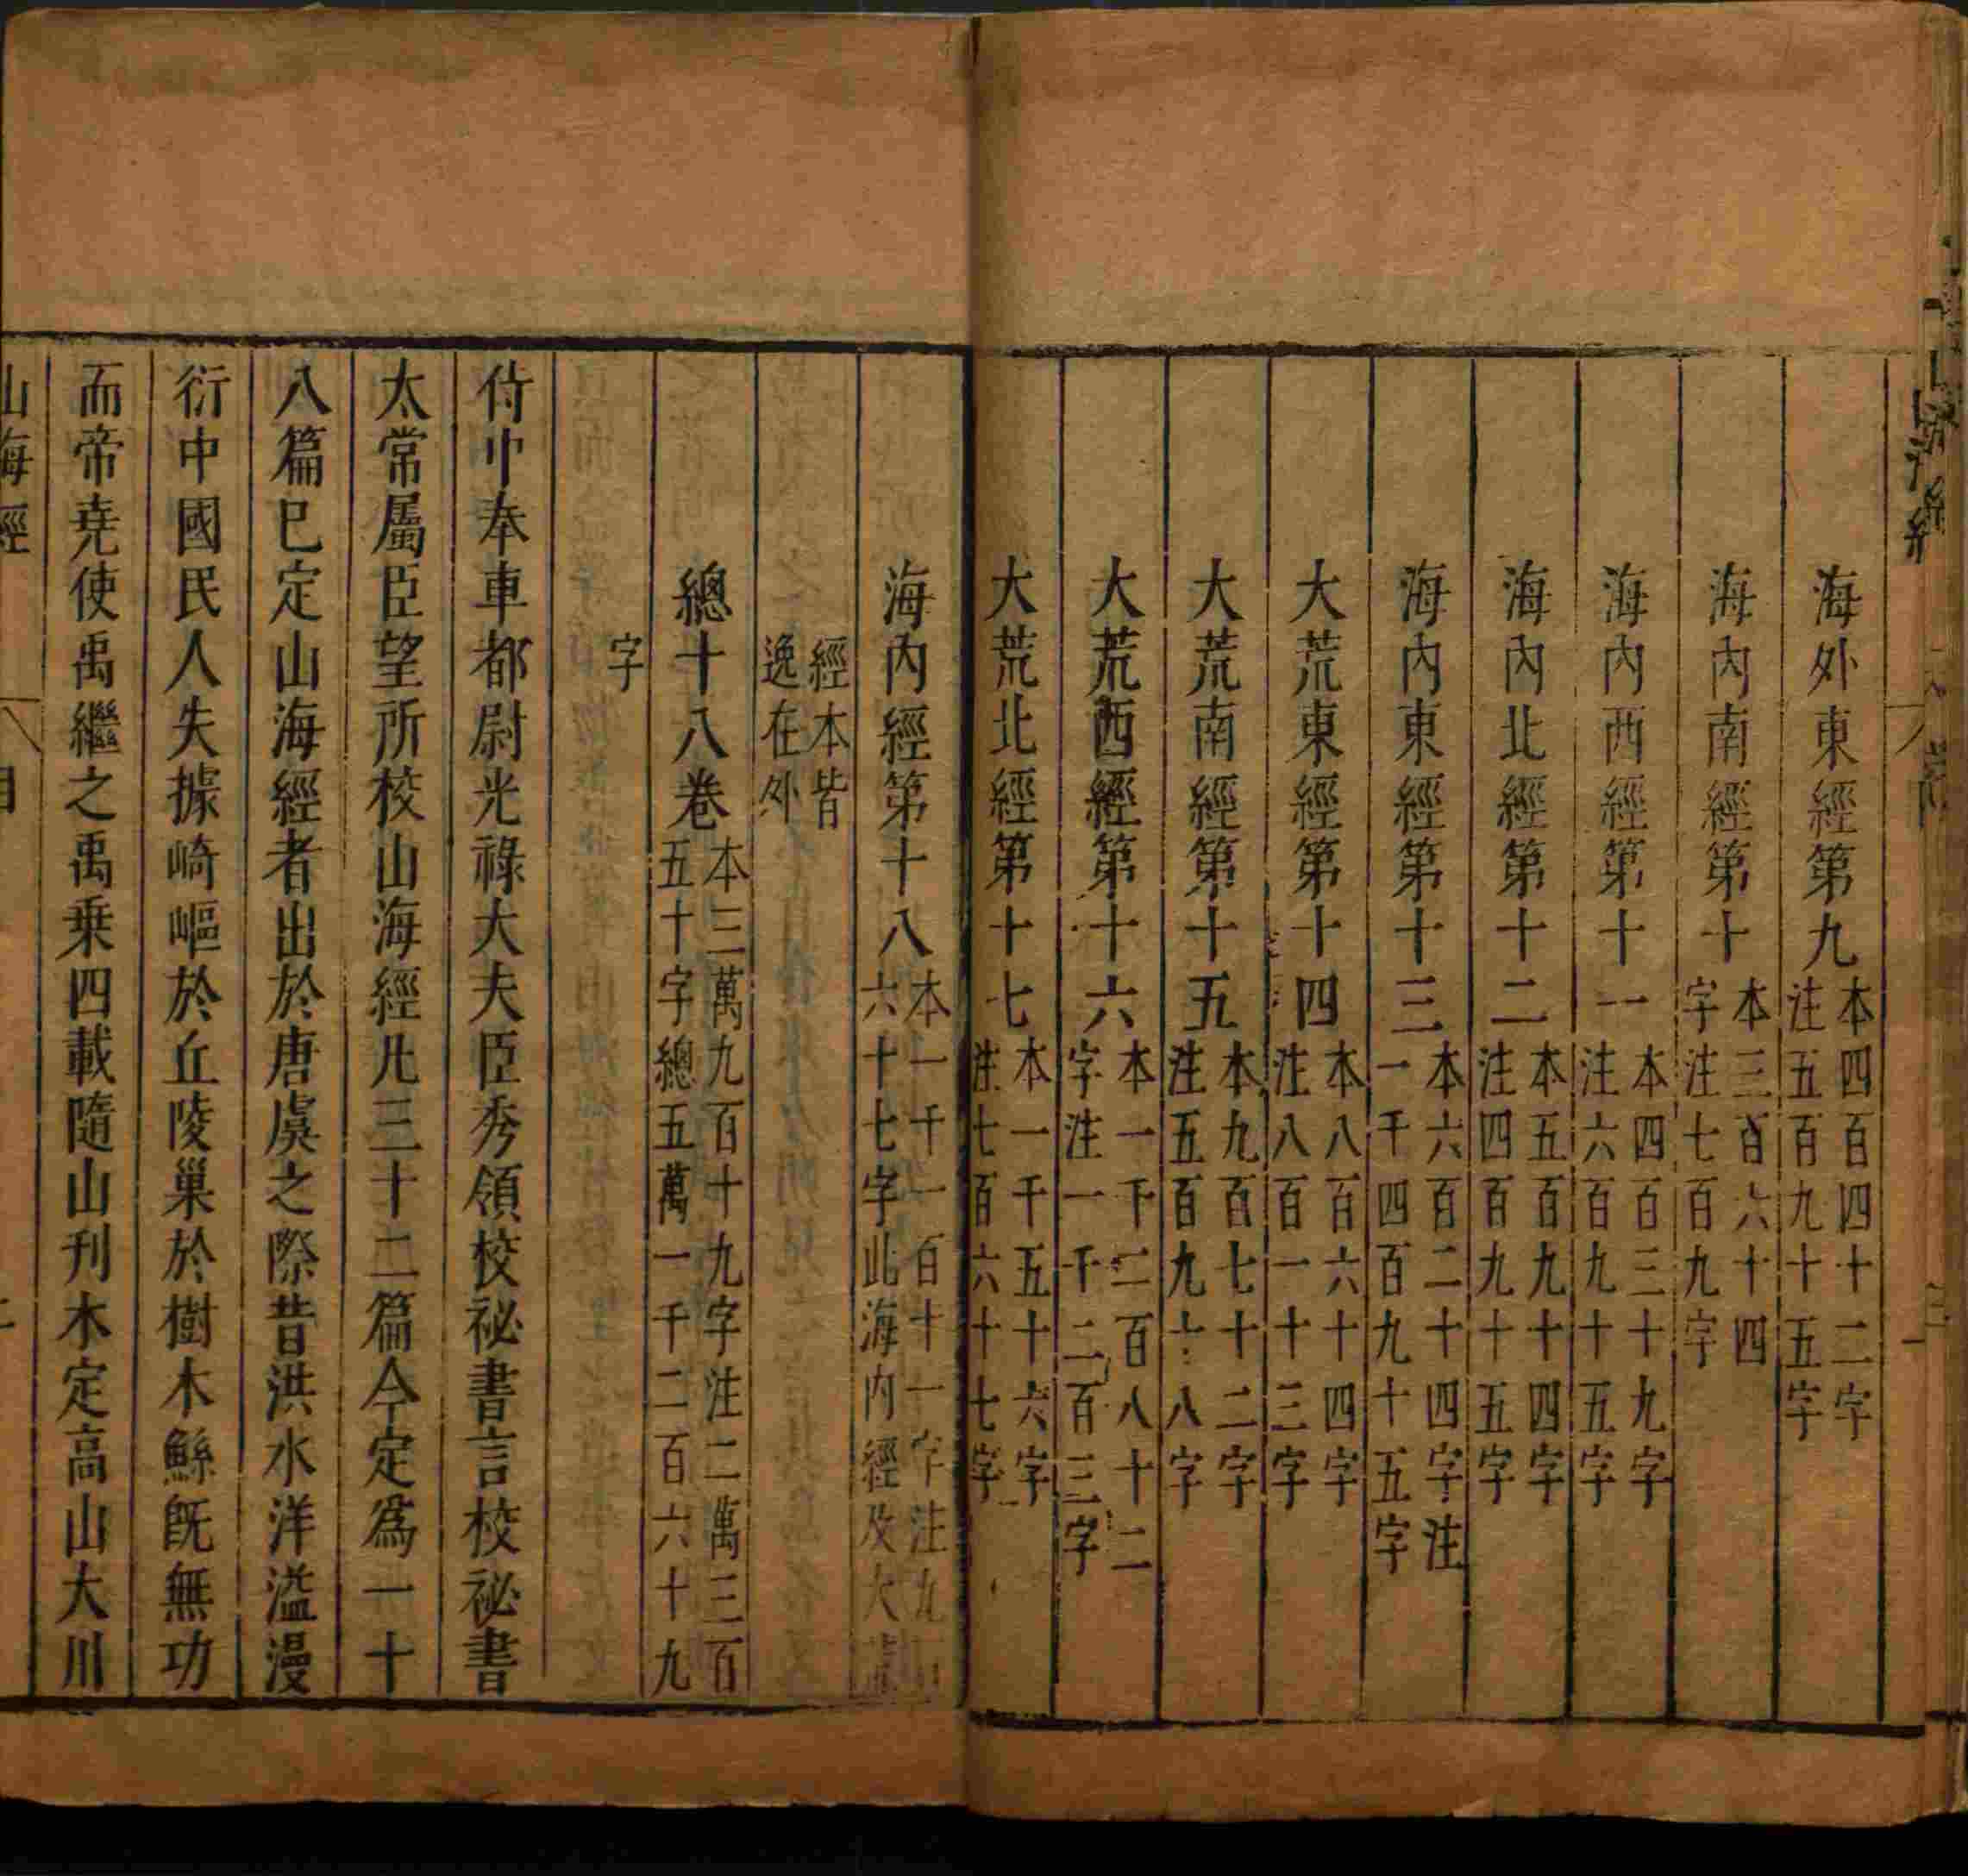 海外東經第九本四百四十二字注五百九十五字
海內南經第十本三百六十四字注七百九字
海內西經第十一本四百三十九字注六百九十五字
海內北經第十二本五百九十四字注四百九十五字
海內東經第十三本六百二十四字注一千四百九十五字
大荒東經第十四本八百六十四字注八百一十三字
大荒南經第十五本九百七十二字注五百九十八字
大荒西經第十六本一千二百八十二字注一千二百三字
大荒北經第十七本一千五十六字注七百六十七字
海內經第十八本一千一百十一字注九百六十七字此海內經及大荒
經本皆逸在外
總十八卷本三萬九百十九字注二萬三百五十字總五萬一千二百六十九
字
侍中奉車都尉光祿大夫臣秀領校祕書言校祕書
太常屬臣望所校山海經凡三十二篇今定爲一十
八篇已定山海經者出於唐虞之際昔洪水洋溢漫
衍中國民人失據崎嶇於丘陵巢於樹木鯀旣無功
而帝堯使禹繼之禹乗四載隨山刋木定高山大川
山海經
目